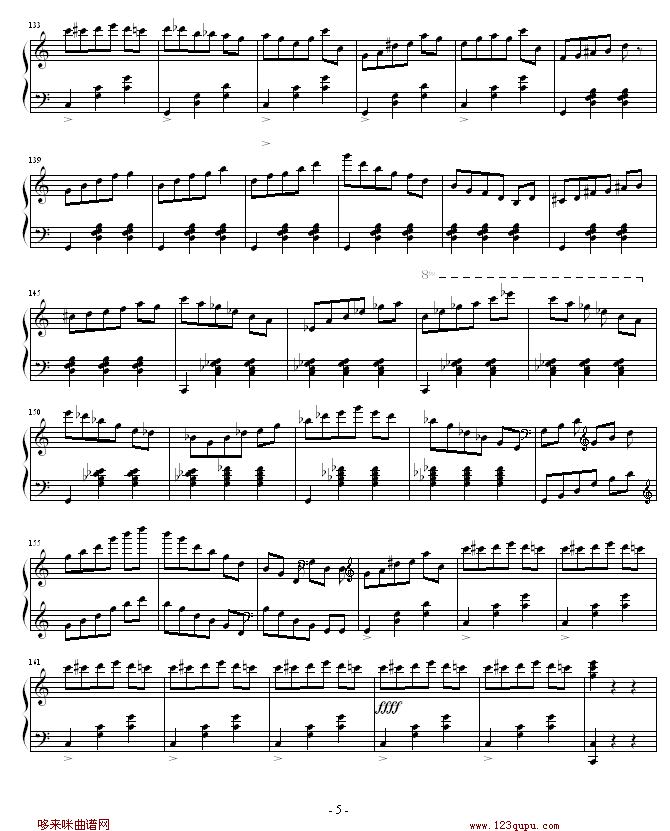 133
139
145
8va
150
155
141
ffff
- 5 -
哆来咪曲谱网
www.123qupu.com